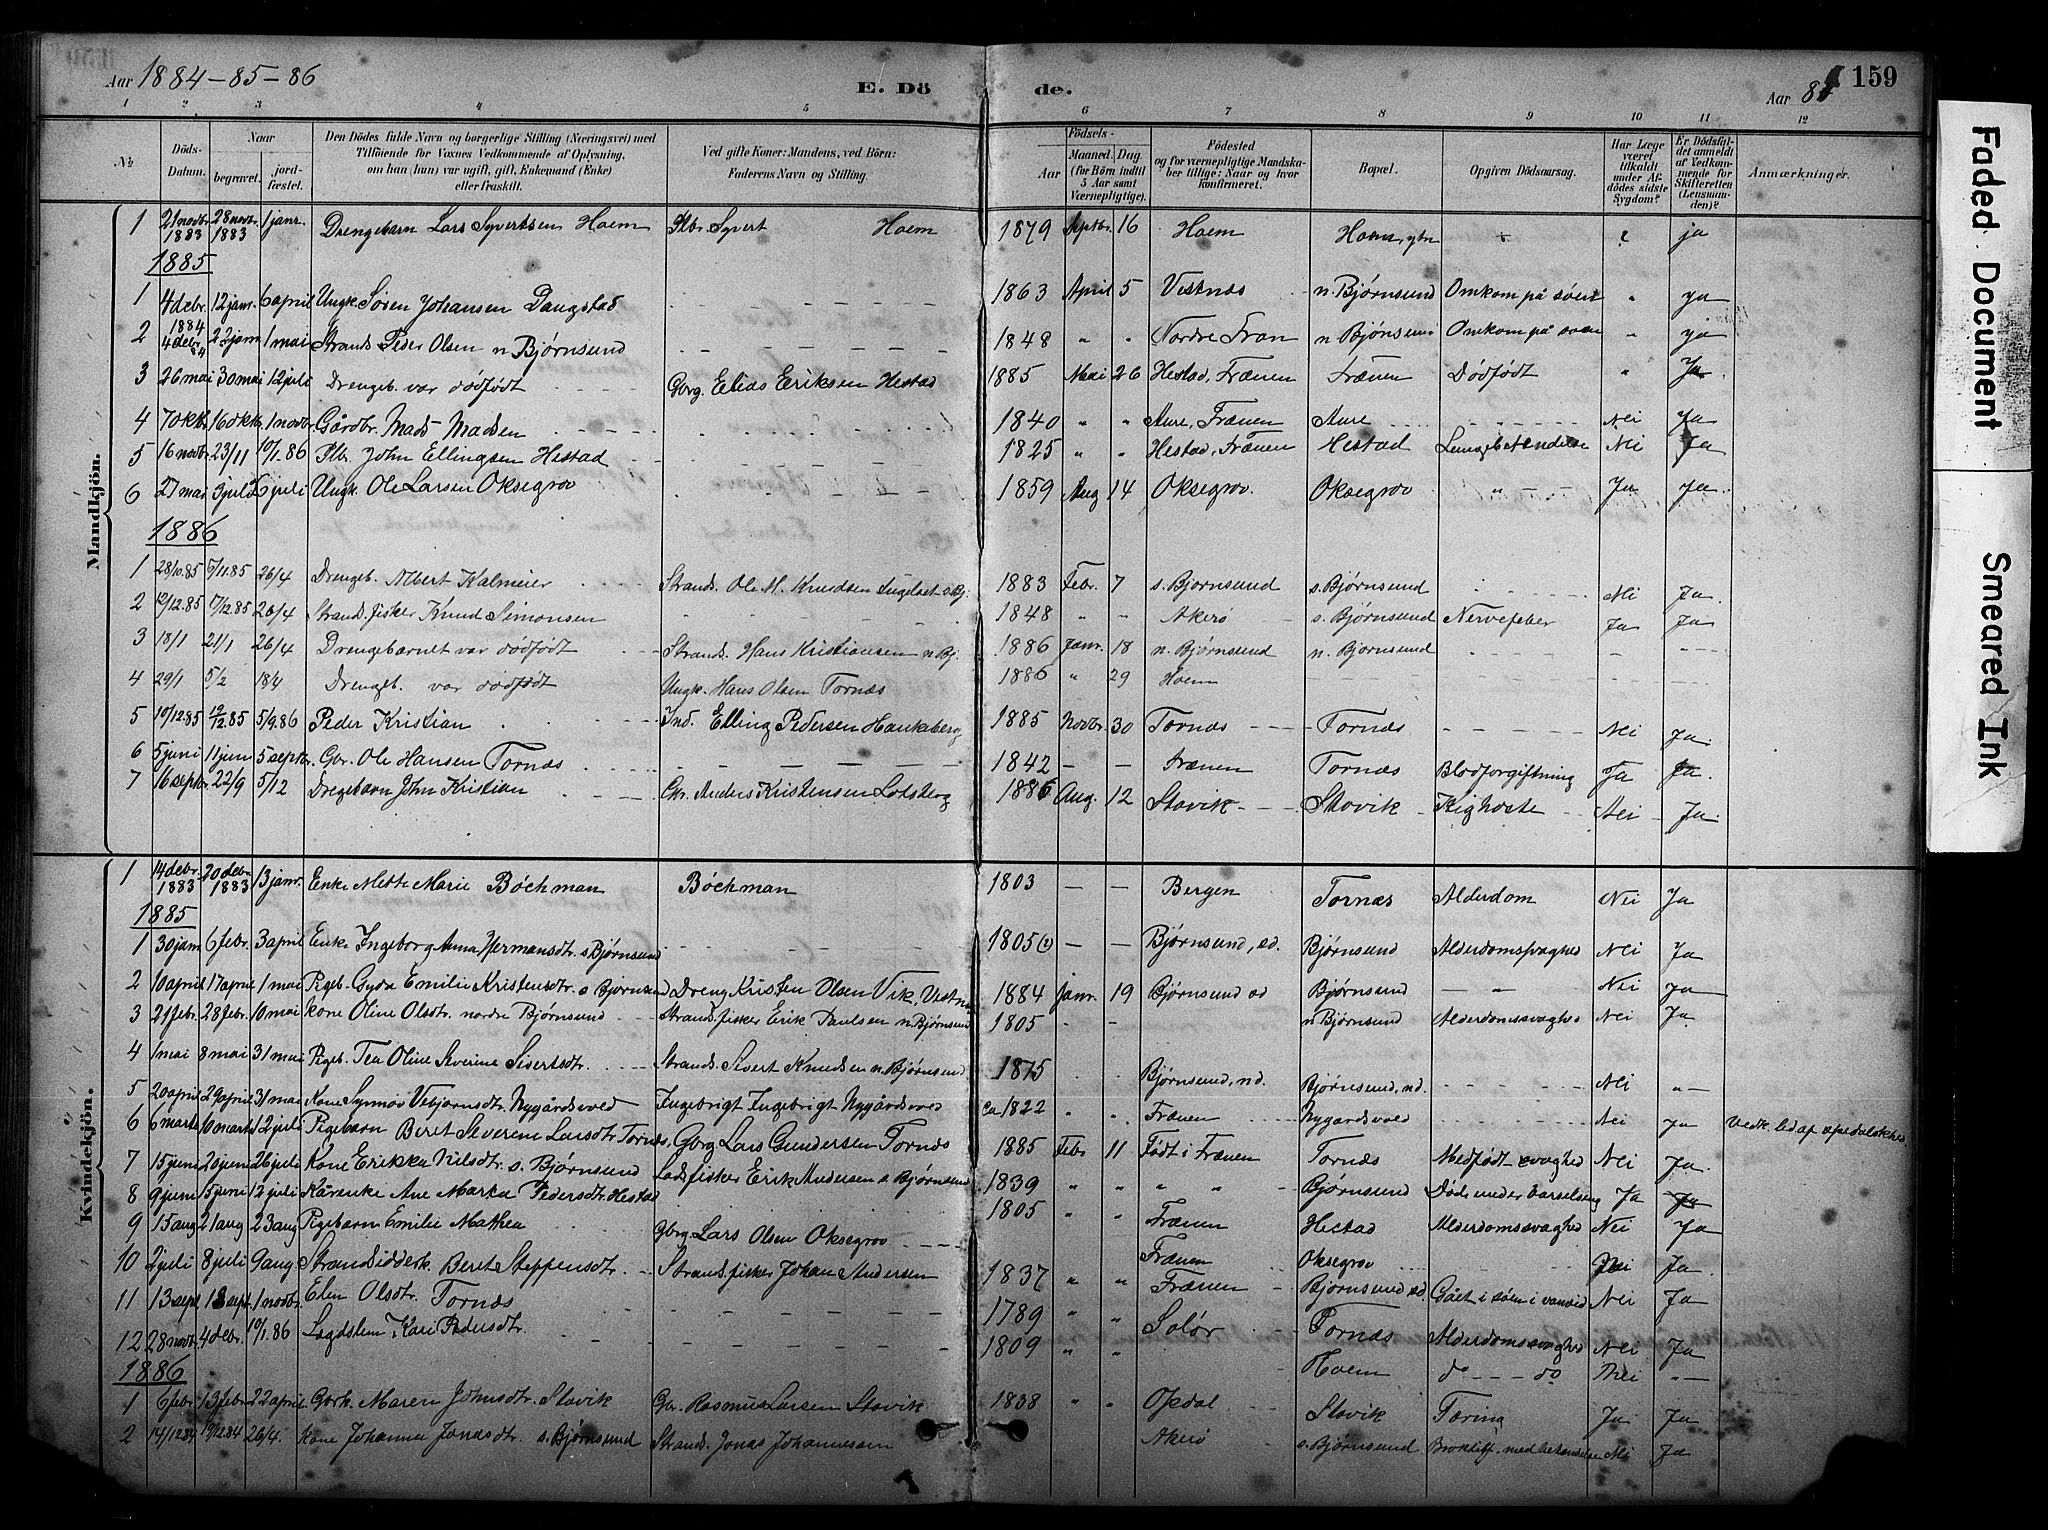 Aar 1884-85-86 E. Dö de. Aar 84 159
1 2 3 4 5 6 7 8 9 10 11 12
№ Döds-Datum. Naar begravet. jord-fæstet. Den Dödes fulde Navn og borgerlige Stilling (Næringsvei) med Tilföiende for Voxnes Vedkommende af Oplysning, om han (hun) var ugift, gift, Enkemand (Enke) eller fraskilt. Ved gifte Koner: Mandens, ved Börn: Faderens Navn og Stilling. Födsels- Aar Maaned Dag. (for Börn indtil 5 Aar samt Værnepligtige). Födested og for værnepligtige Mandska-ber tillige: Naar og hvor konfirmeret. Bopæl. Opgiven Dödsaarsag. Har Læge været tilkaldt under Af-dödes sidste Sygdom? Er Dödsfal-det anmeldt af Vedkom-mende for Skifteretten (Lensman-den)? Anmærkninger.
Mandkjön.
1 21 novbr. 1883 28 novbr. 1883 1 janr. Drengebarn Lars Syvertsen Hoem Plbr. Syvert Hoem 1879 Septbr. 16 Hoem ja
1885
1 4 debr. 1884 12 janr. 6 april Ungk. Søren Johansen Daugstad 1863 April 5 Vestnæs n. Bjørnsund Omkom på søen " ja
2 4 debr. 22 jan 1 mai Strands. Peder Olsen n Bjørnsund 1848 " " Nordre Fræn n Bjørnsund Omkom på søen " ja
3 26 mai 30 mai 12 juli Drengeb. var dødfødt Gbrg. Elias Eriksen Hestad 1885 Mai 26 Hestad, Frænen Frænen Dødfødt " Ja
4 7 oktb. 16 oktb. 1 novbr. Gårdbr. Mads Madsen 1840 " " Aure, Frænen Aure Nei Ja
5 16 novbr. 23/11 10/1.86 Plbr. John Ellingsen Hestad 1825 " " Hestad, Frænen Hestad Lungebetændelse Nei Ja
6 27 mai 3 juli 5 juli Ungk. Ole Larsen Oksegrov 1859 Aug 14 Oksegrov Oksegrov " Ja Ja
1886
1 28/10.85 6/11.85 26/4 Drengeb. Albert Kalmeier Strands. Ole M. Knudsen s. Bj. 1883 Febr. 7 s. Bjørnsund s. Bjørnsund Nei Ja
2 12/12.85 17/12.85 26/4 Strand.fisker Knud Simonsen 1848 " " Akerø s. Bjørnsund Nervefeber Ja Ja
3 18/1 21/1 26/4 Drengebarnet var dødfødt Strands. Hans Kristiansen n. Bj. 1886 Janr. 18 n. Bjørnsund n. Bjørnsund
4 29/1 5/2 18/4 Drengeb. var dødfødt Ungk. Hans Olsen Tornæs 1886 " 29 Hoem
5 10/12.85 12/12.85 5/9.86 Peder Kristian Ind. Elling Pedersen Haukaberg 1885 Novbr. 30 Tornæs Tornæs Nei Ja
6 5 juni 11 juni 5 septbr. Gbr. Ole Hansen Tornæs 1842 Frænen Tornæs Blodforgiftning Ja Ja
7 16 septbr. 22/9 5/12 Drengebarn John Kristian Gbr. Anders Kristensen Lotsberg 1886 Aug. 12 Stavik Stavik Kighoste Nei Ja
Kvindekjön.
1 14 debr. 1883 20 debr. 1883 13 janr. Enke Mette Marie Böchman Böchman 1803 Bergen Tornæs Alderdom Nei Ja
1885
1 30 jan 6 febr. 3 april Enke Ingeborg Anna Hermansdtr. s Bjørnsund 1805(2) Bjørnsund, sd. Bjørnsund Alderdomsvaghed Nei Ja
2 10 april 17 april 1 mai Pigeb. Gyda Emilie Kristensdtr. s Bjørnsund Dreng Kristen Olsen Vik, Vestnes 1884 Janr. 19 Bjørnsund sd Bjørnsund Nei Ja
3 21 febr. 28 febr. 10 mai Kone Oline Olsdtr. nordre Bjørnsund Strands.fisker Erik Paulsen n. Bjørnsund 1805 n. Bjørnsund Alderdomssvaghed Nei Ja
4 1 mai 8 mai 31 mai Pigeb. Tea Oline Severine Sivertsdtr. Strands. Sivert Knudsen n. Bjørnsund 1875 Bjørnsund, nd. Bjørnsund, nd. Nei "
5 20 april 29 april 31 mai Kone Synnøv Vebjørnsdtr. Nygårdsvold Ingebrigt Ingebrigt Nygårdsvold ca 1822 " " Frænen Nygårdsvold Nei Ja Vedk. led af spedalskhed
6 6 marts 10 marts 12 juli Pigebarn Beret Severine Larsdtr. Tornæs, Gbrg. Lars Gundersen Tornæs 1885 Febr. 11 Født i Frænen Tornæs Medfødt svaghed Nei Ja
7 15 juni 26 juni 26 juli Kone Erikka Nilsdtr. s. Bjørnsund Lodsfisker Erik Andersen s Bjørnsund 1839 " " " " Bjørnsund Døde under barselseng Ja Ja
8 9 juni 15 juni 12 juli Kårenke Ane Marta Pedersdtr. Hestad 1805 " " Frænen Hestad Alderdomssvaghed Nei Ja
9 15 aug 21 aug 23 aug Pigebarn Emilie Mathea Gbrg. Lars Olsen Oksegrov Frænen Oksegrov Nei Ja
10 2 juli 8 juli 9 aug Strandsidderk. Beret Steffensdtr. Strands.fisker Johan Andersen 1837 " " Frænen Bjørnsund sd. Gået i søen i vanvid Nei Ja
11 13 sept 18 sept. 1 novbr. Elen Olsdtr. Tornæs 1789 " " Solør Tornæs Alderdomssvaghed Nei Ja
12 28 novbr. 4 debr. 10/1.86 Lægdslem Kari Pedersdtr. 1809 " " Hoem do do Nei "
1886
1 6 febr. 13 febr. 22 april Gbrk. Maren Johnsdtr. Stavik Gbr. Rasmus Larsen Stavik 1838 " " Opdal Stavik Tæring Ja Ja
2 14/12 84 19/12 84 26/4. Kone Johanna Jonasdtr. s. Bjørnsund Strands. Jonas Johannessen Akerø s. Bjørnsund Nei Ja
Faded Document
Smeared Ink